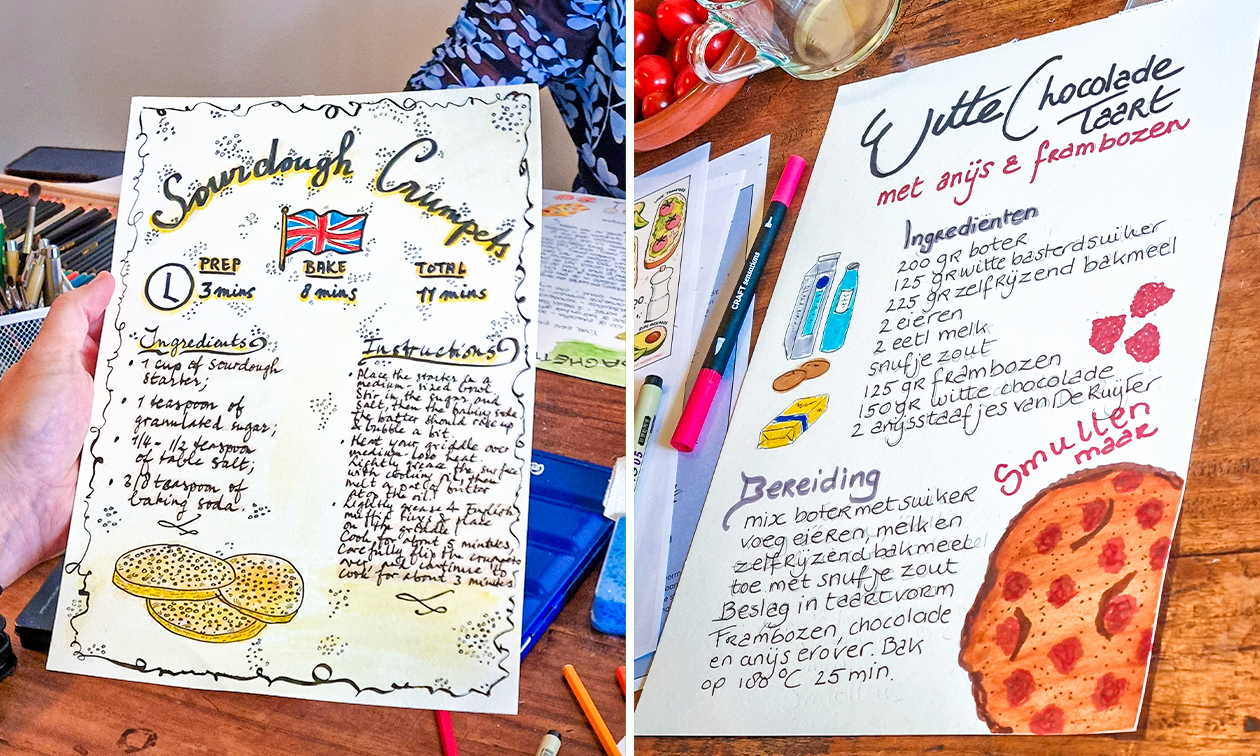 Sourdough Crumpets
PREP
3 mins
BAKE
8 mins
TOTAL
11 mins
Ingredients
• 1 cup of sourdough
starter;
• 1 teaspoon of
granulated sugar;
• 1/4 - 1/2 teaspoon
of table salt;
• 2/8 teaspoon of
baking soda.
Instructions
• Place the starter in a
medium-sized bowl.
Stir in the sugar and
salt, then the baking soda.
The batter should rise up
& bubble a bit.
• Heat your griddle over
medium-low heat.
Lightly grease the surface
with cooking oil, then
melt a bit of butter
atop the oil!
• Lightly grease 4 English
muffin rings & place
on the griddle.
Cook for about 5 minutes,
Carefully flip the crumpets
over and continue to
cook for about 3 minutes
SPAGHETTI
Witte Chocolade
Taart
met anijs & frambozen
Ingrediënten
200 gr boter
125 gr witte basterdsuiker
225 gr zelfrijzend bakmeel
2 eieren
2 eetl melk
snufje zout
125 gr frambozen
150 gr witte chocolade
2 anijsstaafjes van De Ruijter
Smullen
maar
Bereiding
mix boter met suiker
voeg eieren, melk en
zelfrijzend bakmeel
toe met snufje zout
Beslag in taartvorm
Frambozen, chocolade
en anijs erover. Bak
op 180°C 25 min.
CRAFT sensations